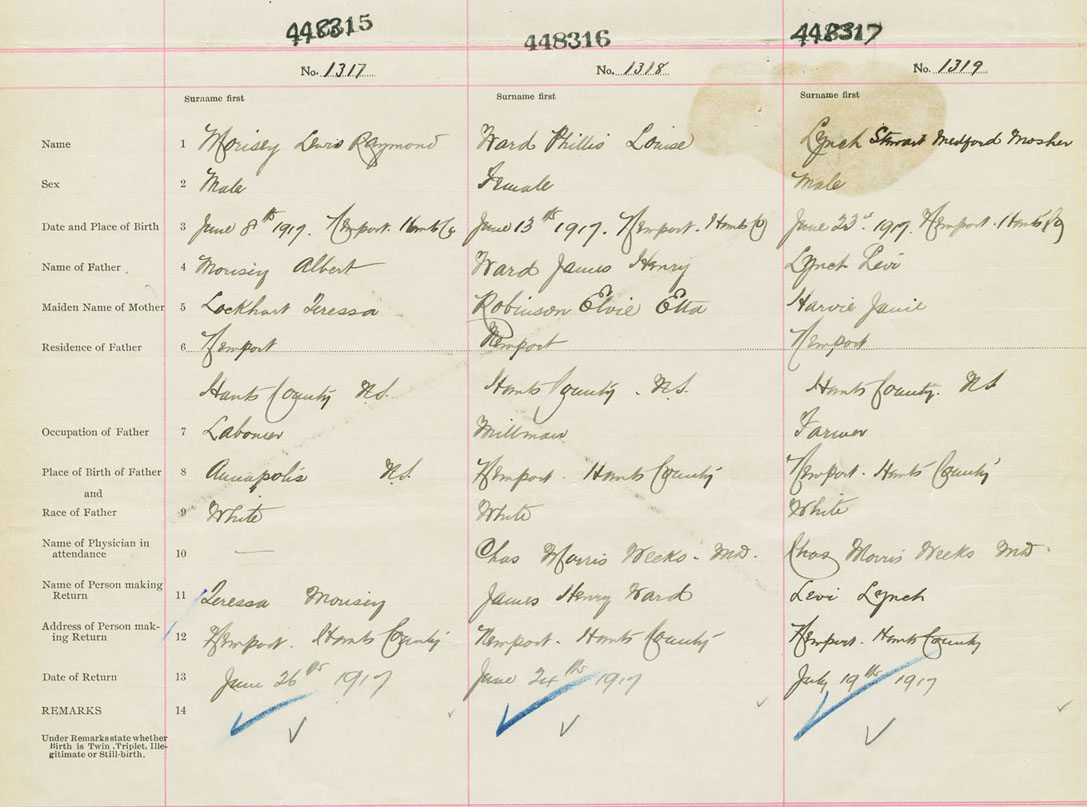 448315 448316 448317
No. 1317 No. 1318 No. 1319
Surname first Surname first Surname first
Name 1 Morisey Lewis Raymond Ward Phillis Louise Lynch Stewart Medford Mosher
Sex 2 Male Female Male
Date and Place of Birth 3 June 8th 1917. Newport. Hants Co June 13th 1917. Newport. Hants Co June 22d 1917. Newport. Hants Co
Name of Father 4 Morisey Albert Ward James Henry Lynch Levi
Maiden Name of Mother 5 Lockhart Teressa Robinson Elvie Etta Harvie Janie
Residence of Father 6 Newport Newport Newport
Hants County N.S. Hants County. N.S. Hants County. N.S
Occupation of Father 7 Labourer Millman Farmer
Place of Birth of Father 8 Annapolis N.S. Newport. Hants County Newport. Hants County
and
Race of Father 9 White White White
Name of Physician in
attendance 10 — Chas Morris Weeks. M.D. Chas Morris Weeks M.D.
Name of Person making
Return 11 Teressa Morisey James Henry Ward Levi Lynch
Address of Person mak-
ing Return 12 Newport. Hants County Newport. Hants County Newport. Hants County
Date of Return 13 June 26th 1917 June 24th 1917 July 19th 1917
REMARKS 14
Under Remarks state whether
Birth is Twin, Triplet, Ille-
gitimate or Still-birth.